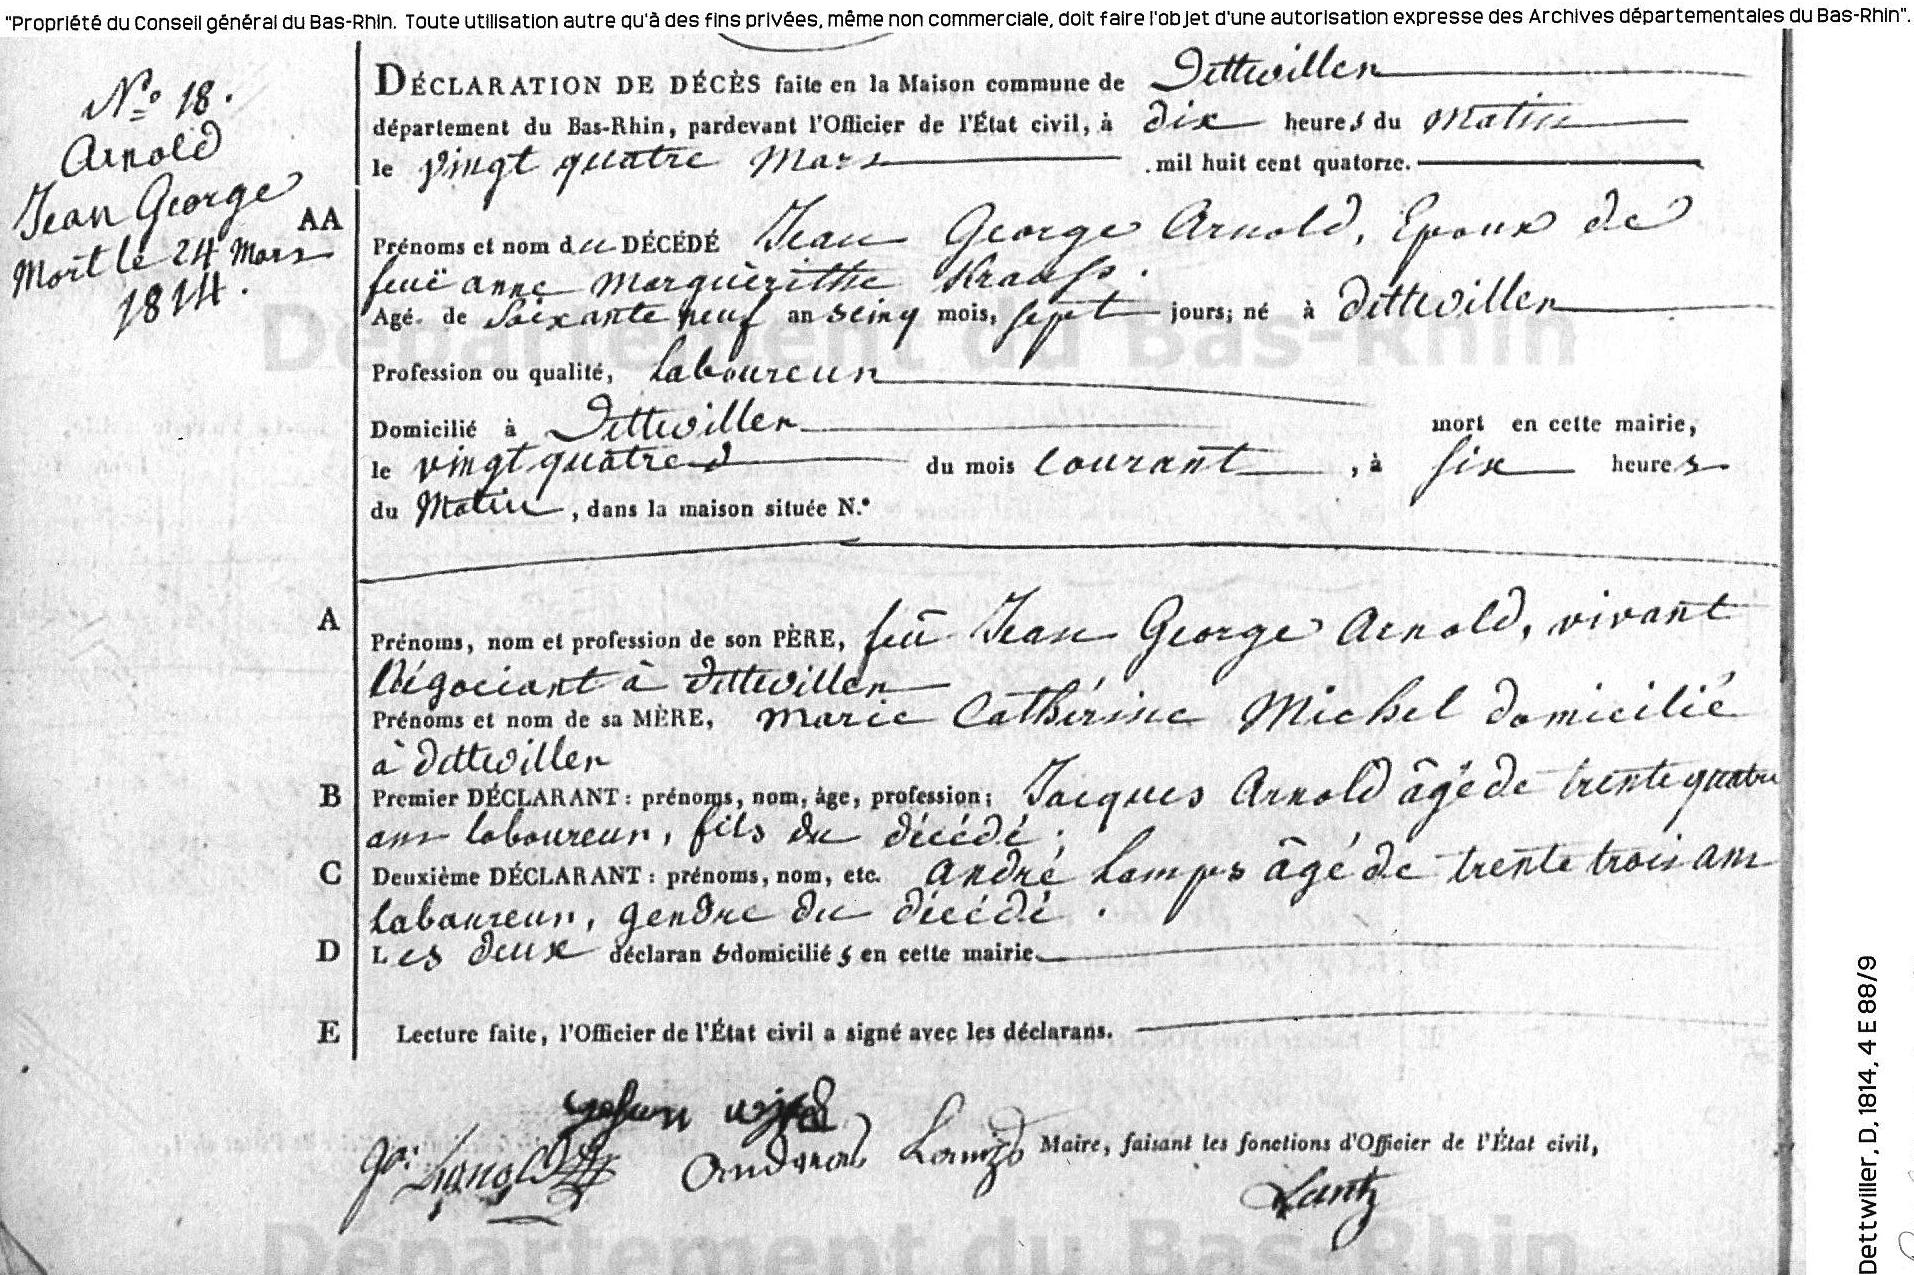 "Propriété du Conseil général du Bas-Rhin. Toute utilisation autre qu'à des fins privées, même non commerciale, doit faire l'objet d'une autorisation expresse des Archives départementales du Bas-Rhin".
N.o 18.
Arnold
Jean George
Mort le 24 Mars
1814.
DÉCLARATION DE DÉCÈS faite en la Maison commune de Dettwiller
département du Bas-Rhin, pardevant l'Officier de l'État civil, à dix heures du Matin
le vingt quatre Mars mil huit cent quatorze.
AA
Prénoms et nom du DÉCÉDÉ Jean George Arnold, Epoux de
feuë anne Marguèrithe Krauss.
Agé de Soixante neuf ans cinq mois, sept jours; né à dettwiller
Profession ou qualité, laboureur
Domicilié à Dettwiller mort en cette mairie,
le vingt quatre du mois courant, à six heures
du Matin, dans la maison située N.°
A
Prénoms, nom et profession de son PÈRE, feû Jean George Arnold, vivant
Négociant à dettwiller
Prénoms et nom de sa MÈRE, Marie Cathérine Michel domicilié
à dettwiller
B Premier DÉCLARANT: prénoms, nom, âge, profession; Jacques Arnold âgé de trente quatre
ans laboureur, fils du décédé;
C Deuxième DÉCLARANT: prénoms, nom, etc. André Lamps âgé de trente trois ans
laboureur, gendre du décédé.
D Les deux déclarans domiciliés en cette mairie.
E Lecture faite, l'Officier de l'État civil a signé avec les déclarans.
Maire, faisant les fonctions d'Officier de l'État civil,
Lantz
Département du Bas-Rhin
Département du Bas-Rhin
Dettwiller, D, 1814, 4 E 88/9